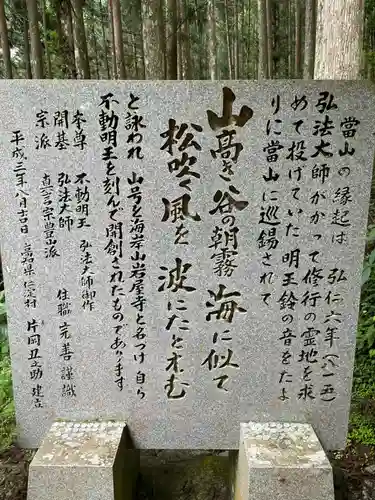 當山の縁起は 弘仁六年(八一五)
弘法大師がかつて修行の霊地を求
めて投げていた明王鈴の音をたよ
りに當山に巡錫されて
山高き谷の朝霧 海に似て
松吹く風を 波にたとえむ
と詠われ 山号を海岸山岩屋寺と名づけ 自ら
不動明王を刻んで開創されたものであります
本尊 不動明王 弘法大師御作
開基 弘法大師 住職 完善 謹識
宗派 真言宗豊山派
平成三年八月吉日 高知県 仁淀村 片岡丑之助 建立